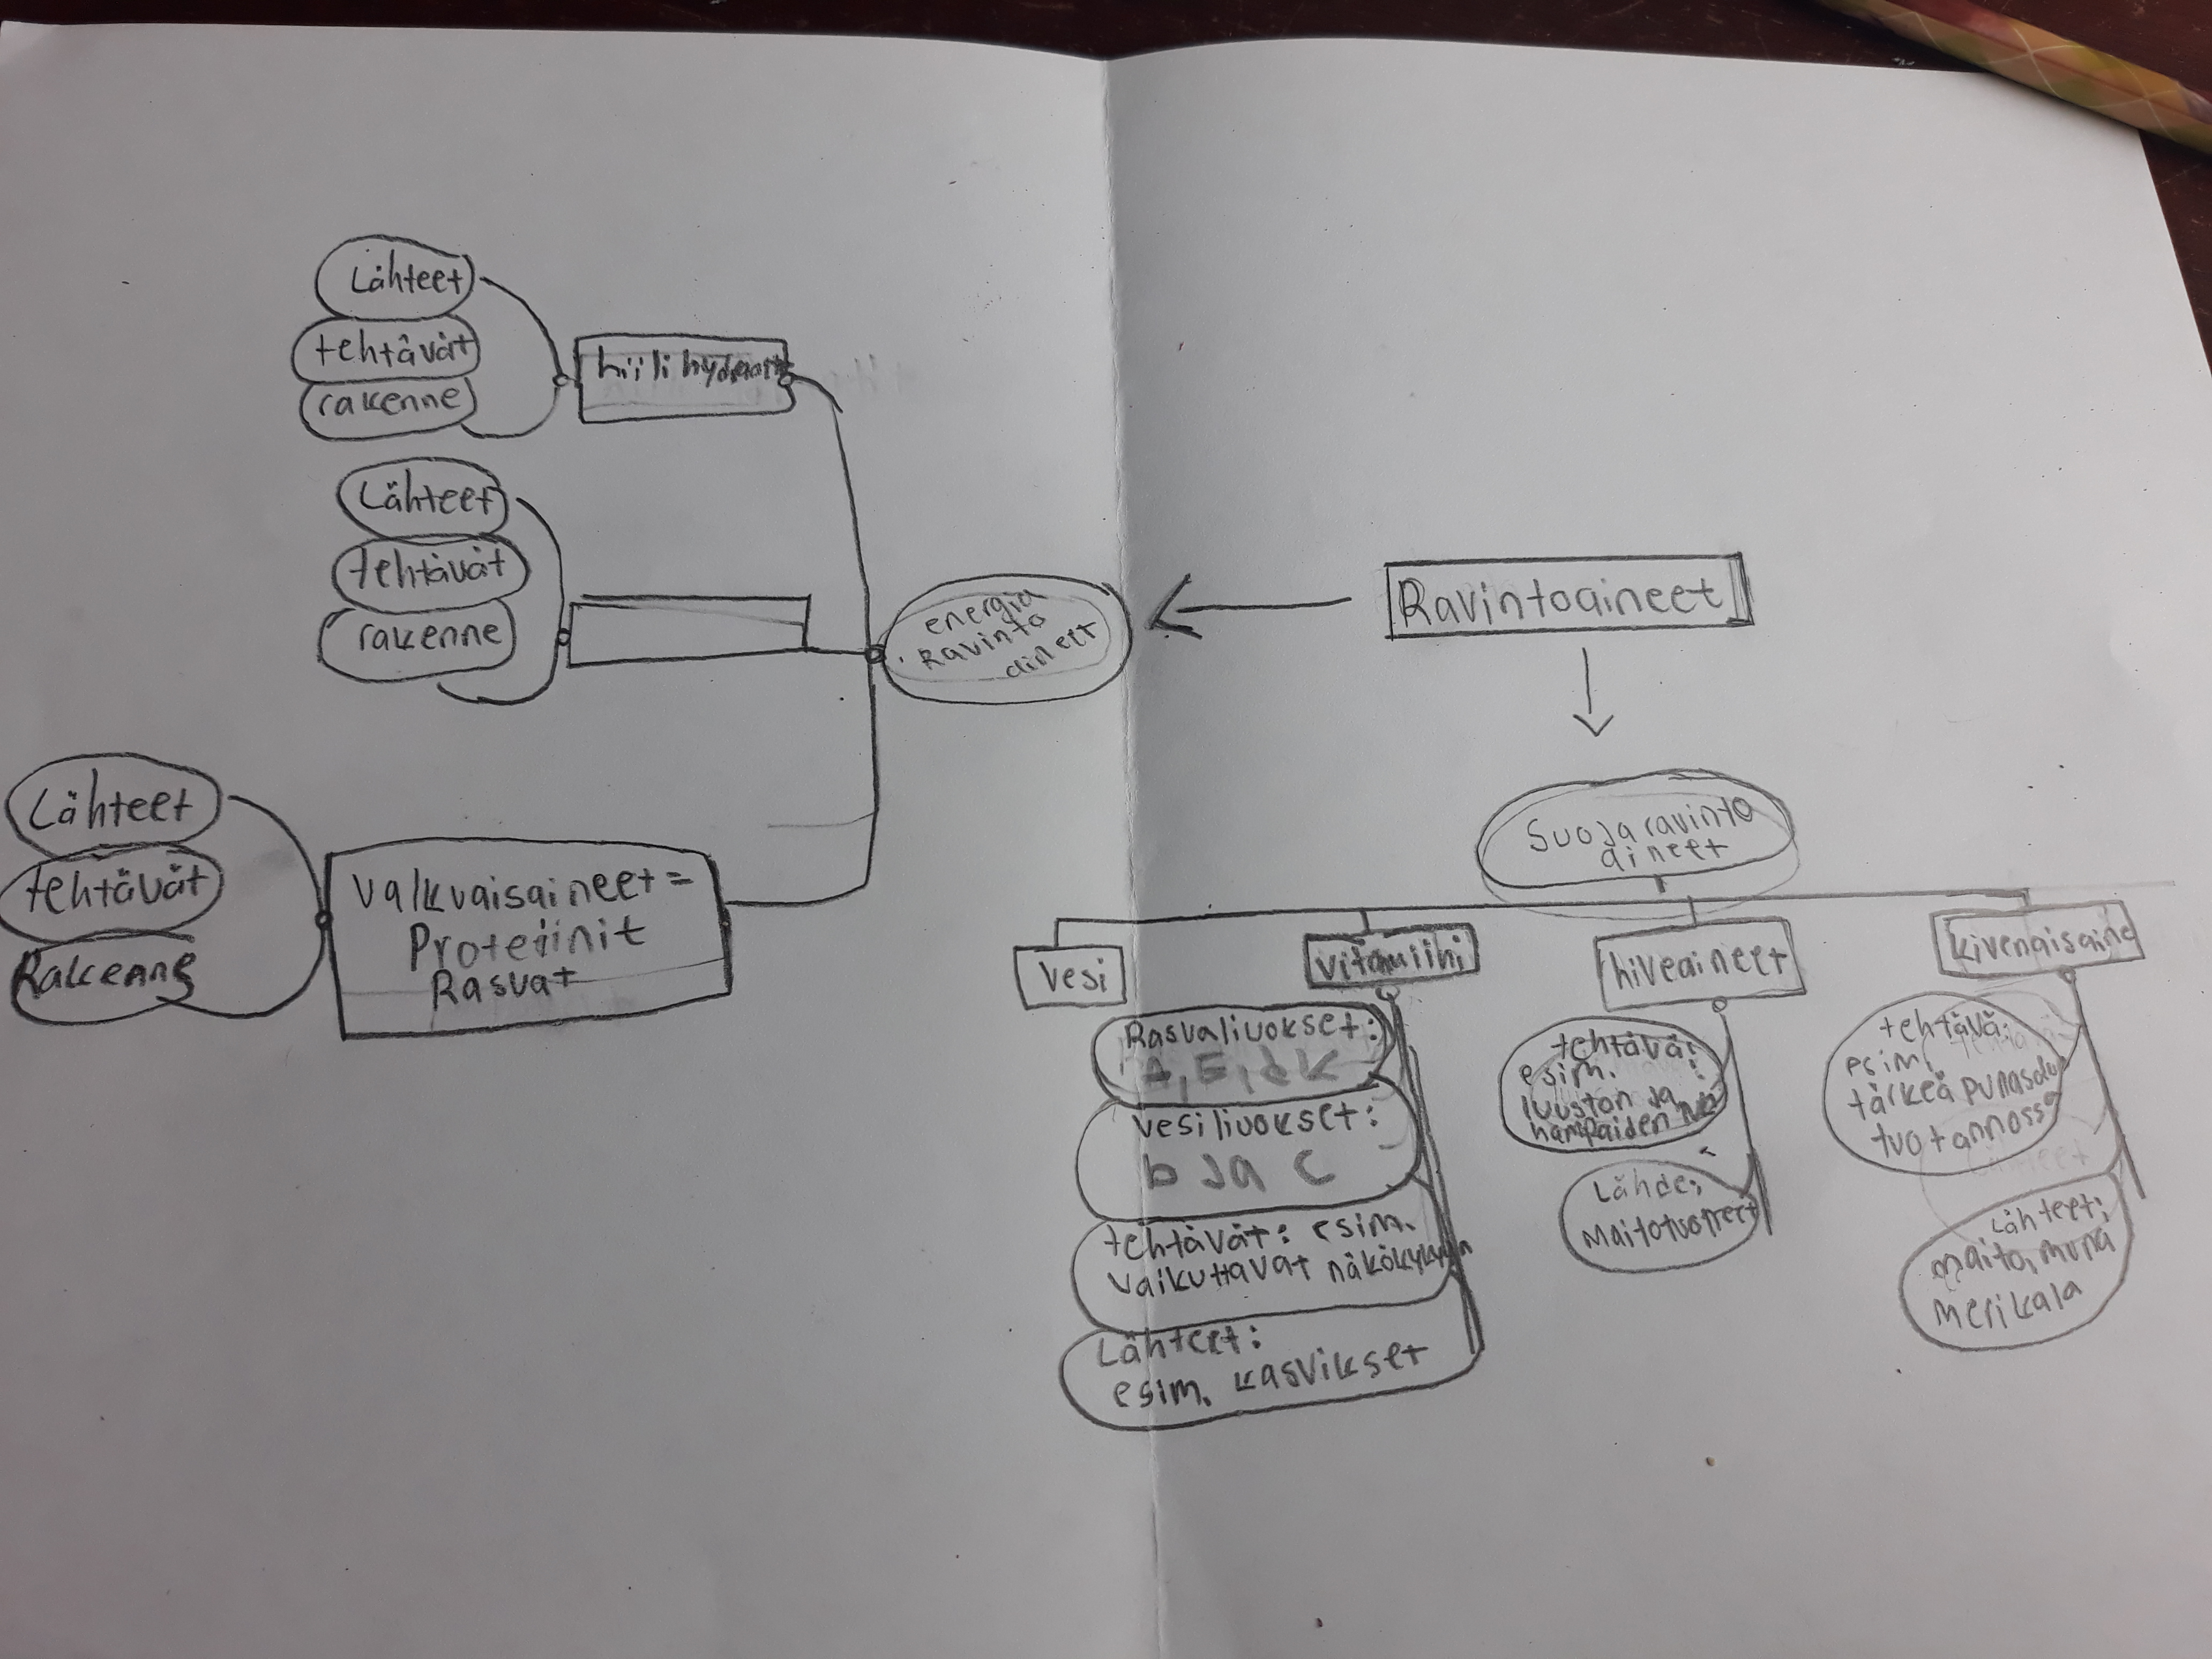 Lähteet
tehtävät
rakenne
hiilihydraatit
Lähteet
tehtävät
rakenne
energia
Ravinto
aineet
Ravintoaineet
Lähteet
tehtävät
Rakenne
Valkvaisaineet=
Proteiinit
Rasvat
Suojaravinto
aineet
Vesi
vitamiini
hiveaineet
kivenaisaine
Rasvaliuokset:
A, E, d K
Vesiliuokset:
b Ja C
tehtävät: esim.
Vaikuttavat näkökykyyn
Lähteet:
esim. kasvikset
tehtävä:
esim.
luuston Ja
hampaiden
Lähde:
Maitotuotteet
tehtävä:
esim.
tärkeä punasolu
tuotannossa
Lähteet:
maito, muna
merikala